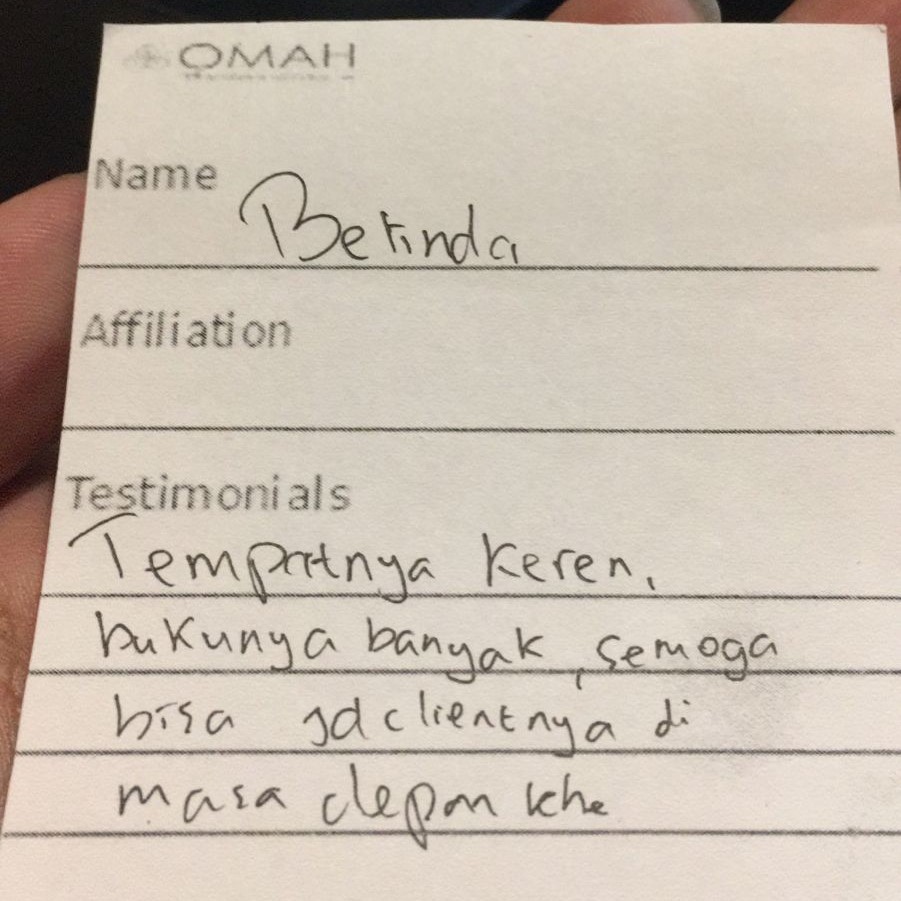 OMAH
Name
Belinda
Affiliation
Testimonials
Tempatnya keren,
bukunya banyak, semoga
bisa jd clientnya di
masa depan